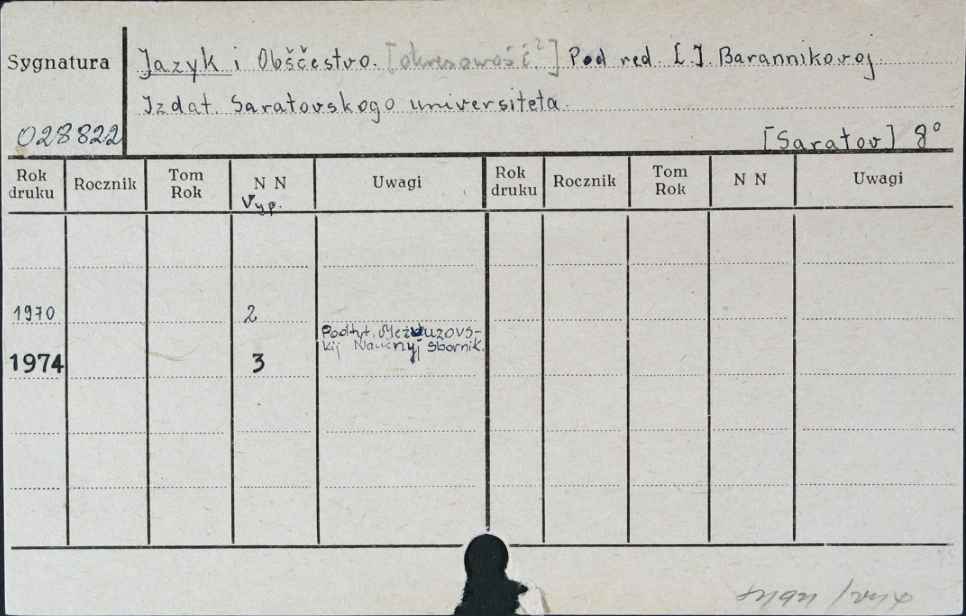 Sygnatura
Jazyk i Obščestvo. [okresowość?] Pod red. L. I. Barannikovoj
Izdat. Saratovskogo universiteta.
028822
[Saratov] 8°
Rok druku Rocznik Tom Rok N N Uwagi Rok druku Rocznik Tom Rok N N Uwagi
Vyp.
1970 2
Podtyt. Mežvuzovs-
kij Naučnyj Sbornik.
1974 3